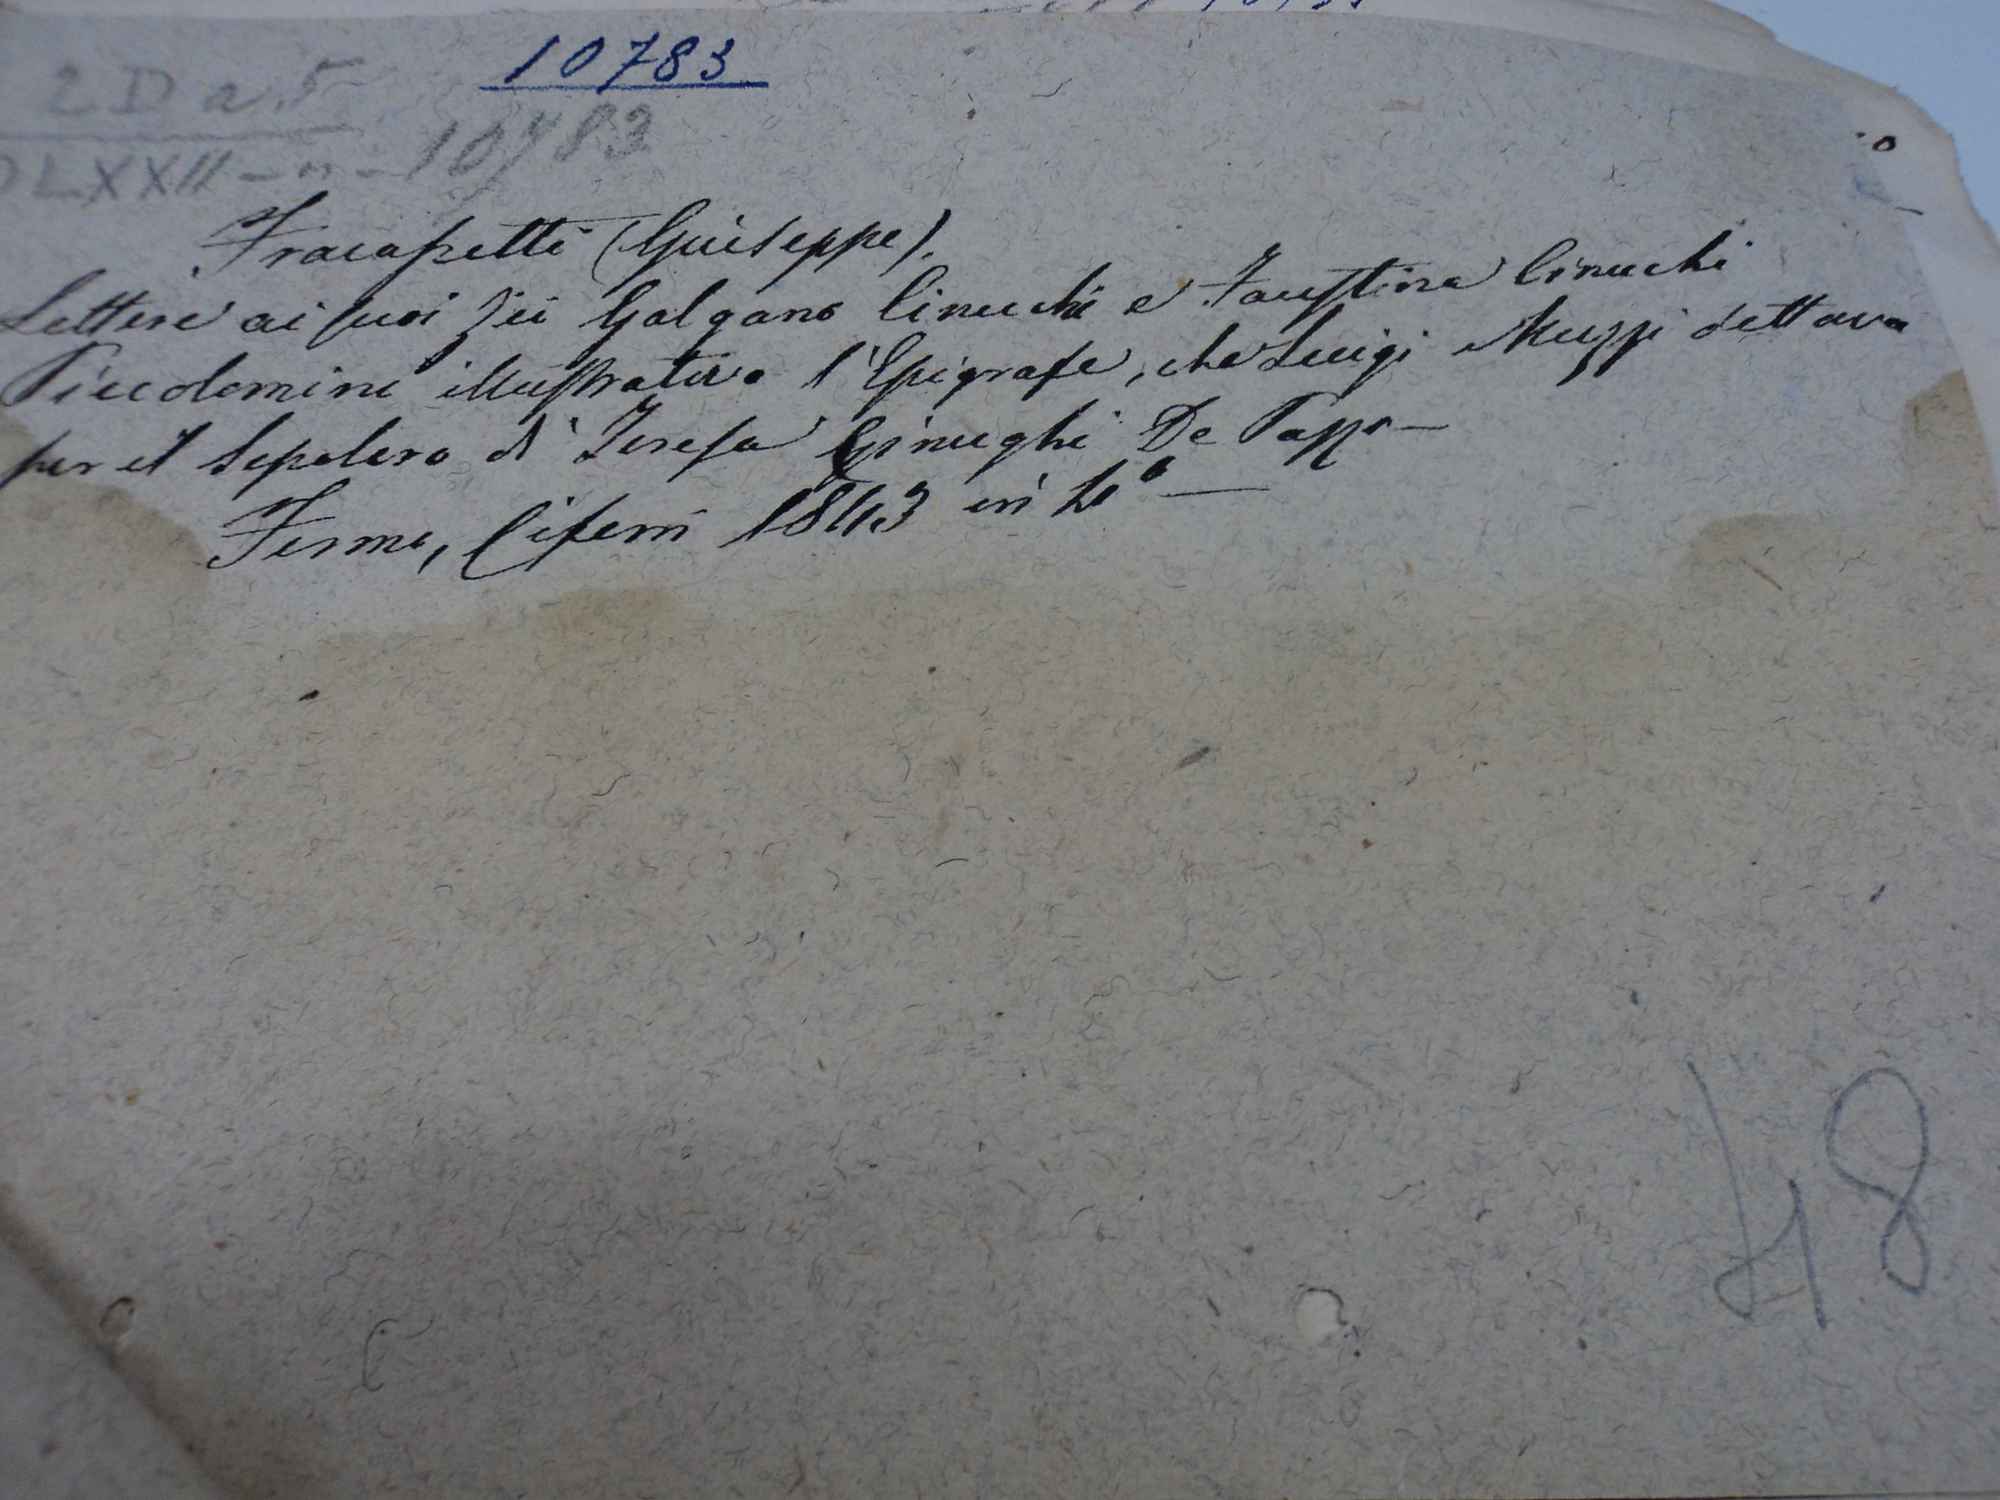 10783
2 D a. 5
DLXXII - n - 10783
Fracassetti (Giuseppe).
Lettere ai suoi Zii Galgano Cinuchi e Faustina Cinuchi
Piccolomini illustrativa l'Epigrafe, che Luigi Muzzi dettava
per il Sepolcro di Teresa Ginughi De Pazzi
Fermo, Ciferri 1843 in 4º
48